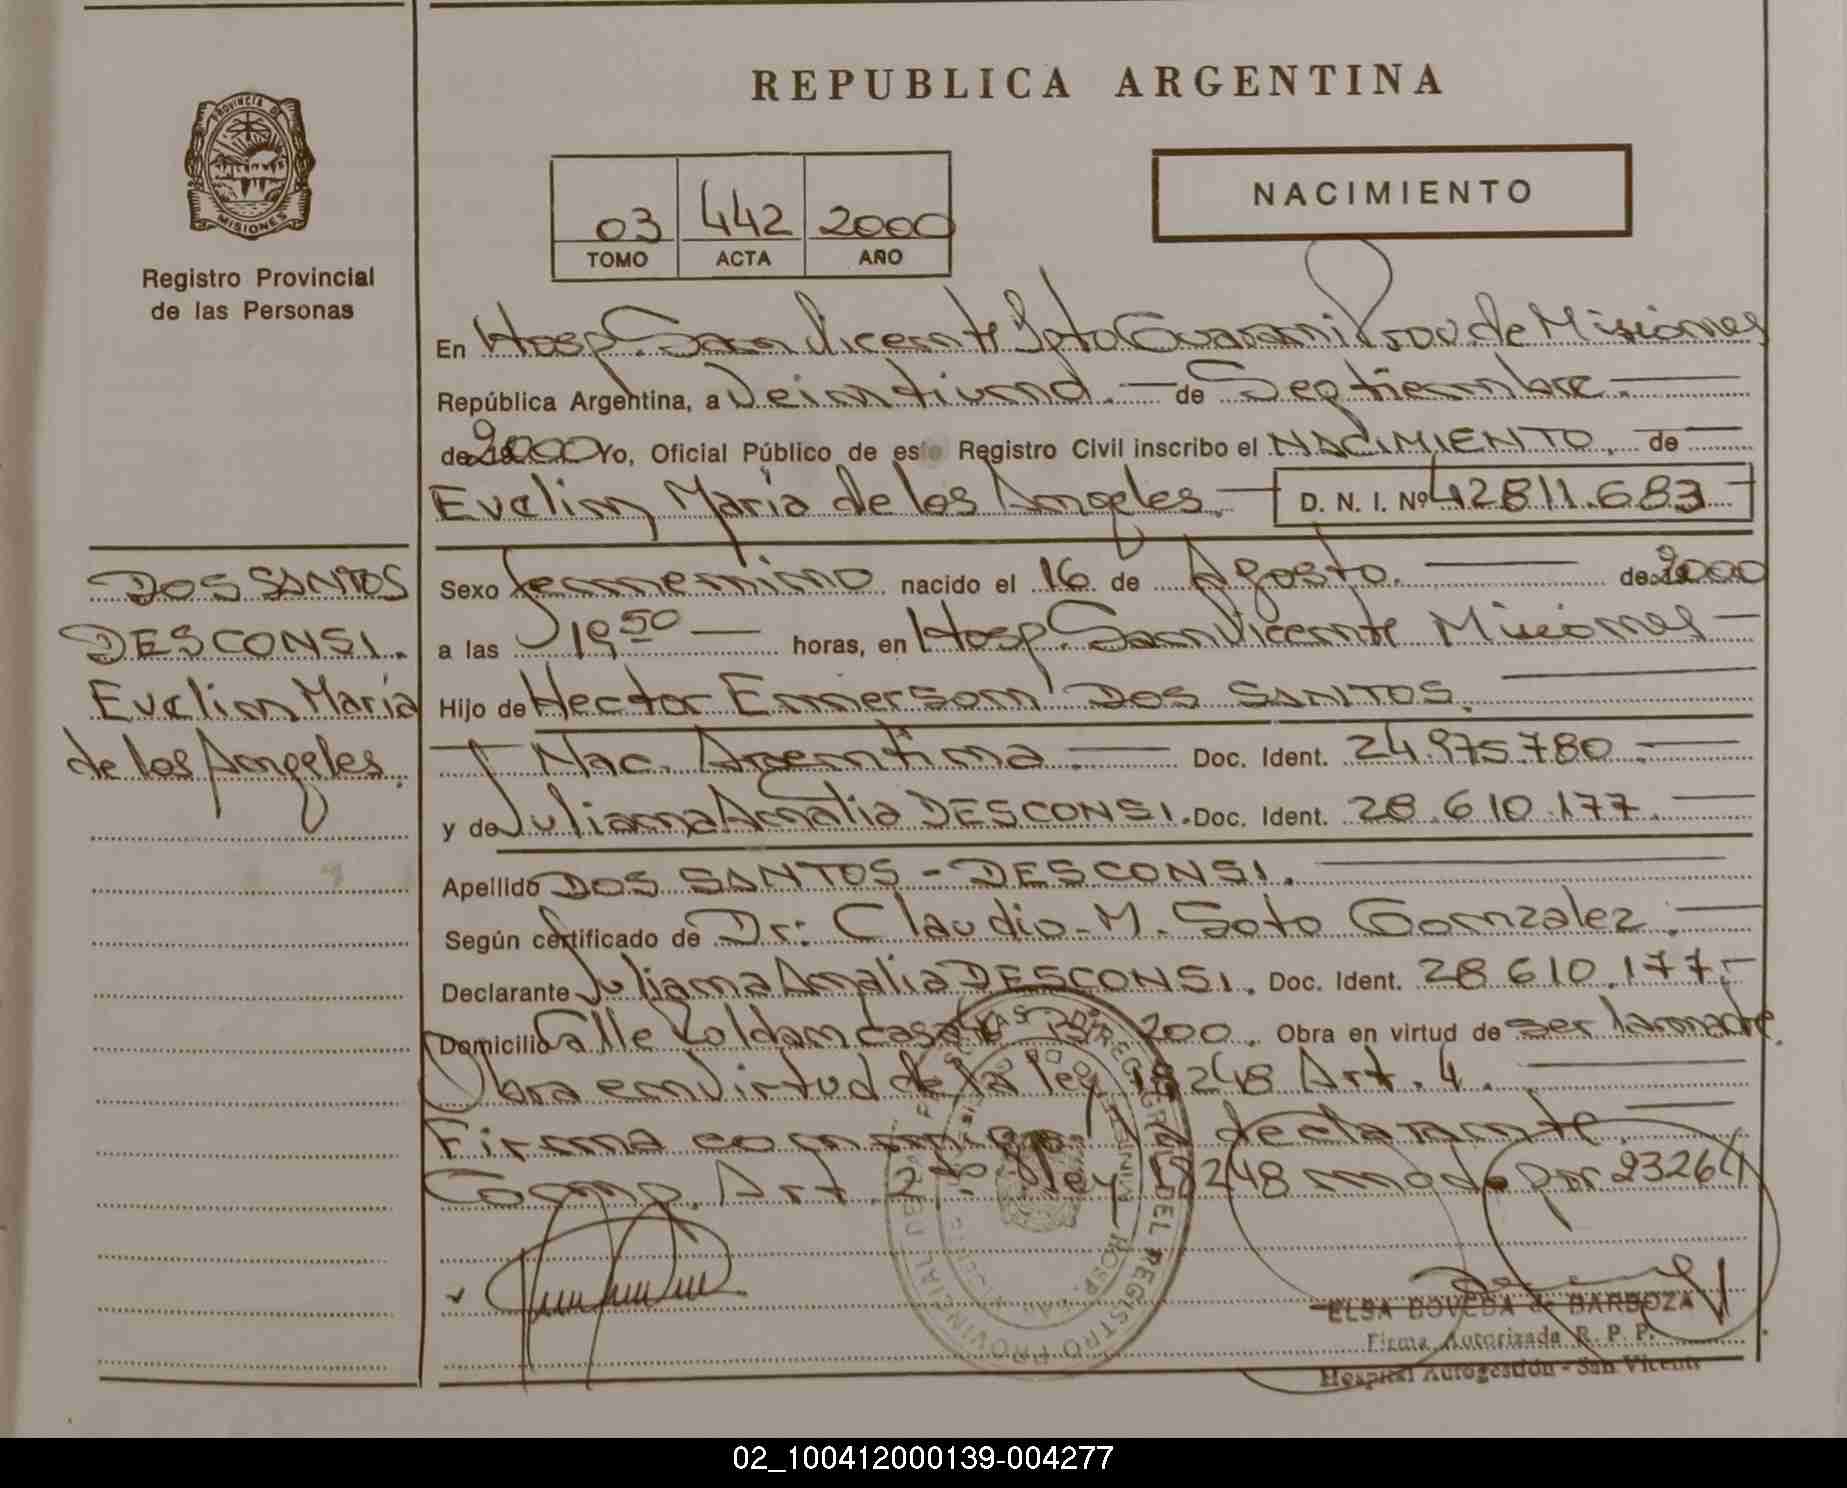 REPUBLICA ARGENTINA
PROVINCIA DE
MISIONES
Registro Provincial
de las Personas
03 442 2000
TOMO ACTA AÑO
NACIMIENTO
En Hosp. San Vicente Dpto Guarani Prov. de Misiones
República Argentina, a Veintiuno. de Septiembre.
de 2000 Yo, Oficial Público de este Registro Civil inscribo el NACIMIENTO. de
Evelin María de los Angeles. D. N. I. Nº 42811.683
DOS SANTOS
DESCONSI.
Evelin María
de los Angeles.
Sexo femenino nacido el 16 de Agosto. de 2000
a las 19 50 horas, en Hosp. San Vicente Misiones
Hijo de Hector Emerson DOS SANTOS.
Nac. Argentina. Doc. Ident. 24.975.780.
y de Juliana Amalia DESCONSI. Doc. Ident. 28.610.177.
Apellido DOS SANTOS - DESCONSI.
Según certificado de Dr: Claudio M. Soto Gonzalez.
Declarante Juliana Amalia DESCONSI. Doc. Ident. 28 610.177.
Domicilio Calle Roldan casa 200. Obra en virtud de ser la madre.
Obra en virtud de la ley 18248 Art. 4.
Firma conmigo. La declarante
Comp. Art. 2do ley 18248 modo por 23264
ELSA BOVEDA de BARBOZA
Firma Autorizada R. P. P.
Hospital Autogestión - San Vicente
02_100412000139-004277